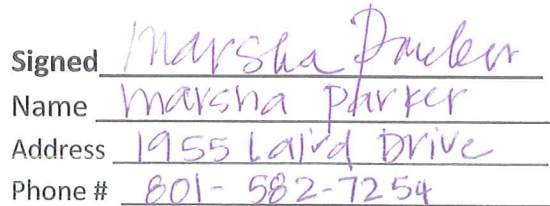 Signed Marsha Parker
Name Marsha Parker
Address 1955 Laird Drive
Phone # 801-582-7254